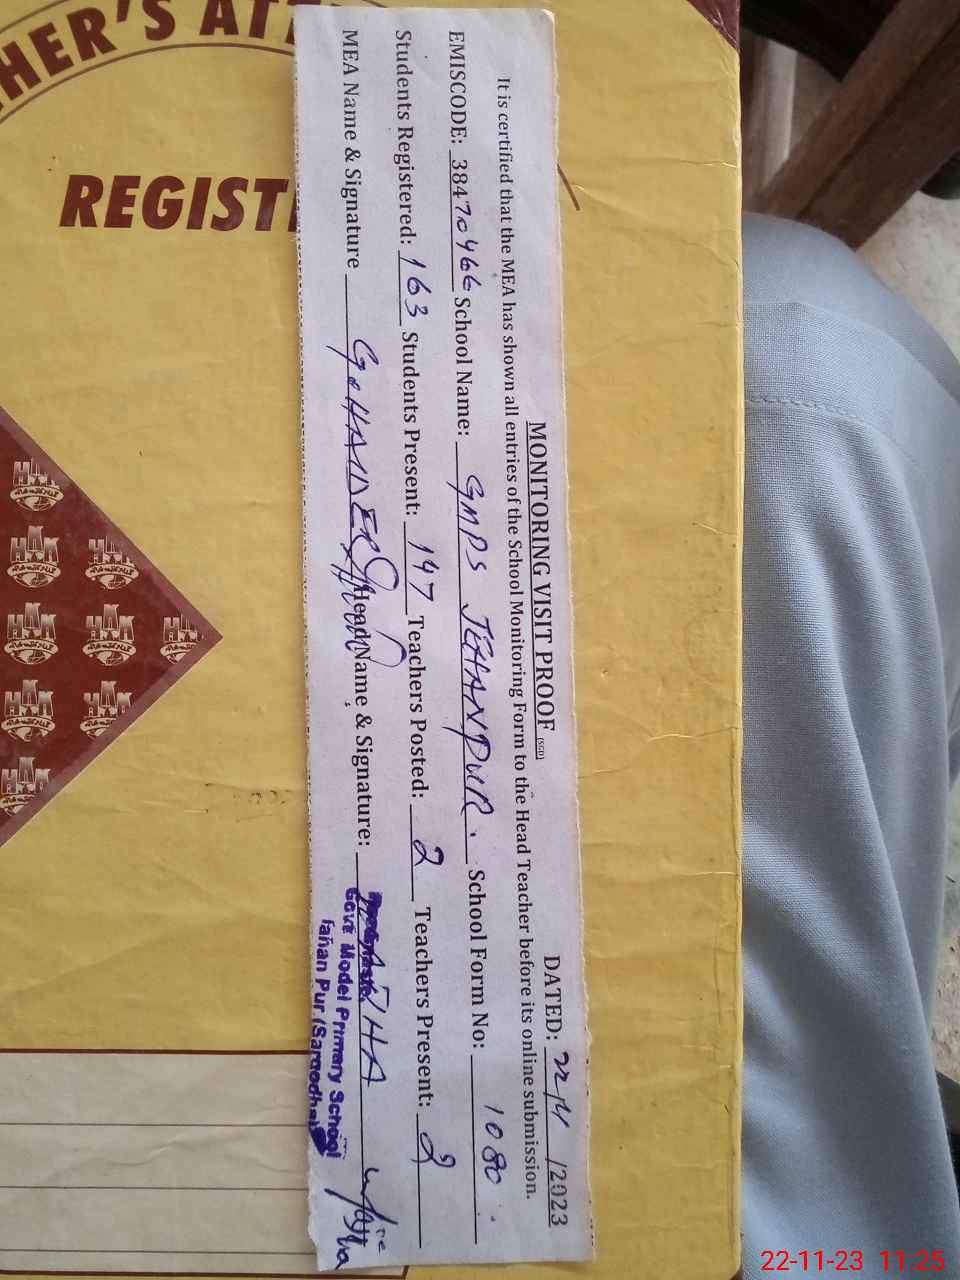 TEACHER'S ATT
REGIST
MONITORING VISIT PROOF (SGD)
DATED: 22-11 /2023
It is certified that the MEA has shown all entries of the School Monitoring Form to the Head Teacher before its online submission.
EMISCODE: 38470466 School Name: GMPS JEHANPUR. School Form No: 1080
Students Registered: 163 Students Present: 147 Teachers Posted: 2 Teachers Present: 2
MEA Name & Signature G. HAIDER Head Name & Signature:
Govt Model Primary School
Jahan Pur (Sargodha)
HAK
22-11-23 11:25